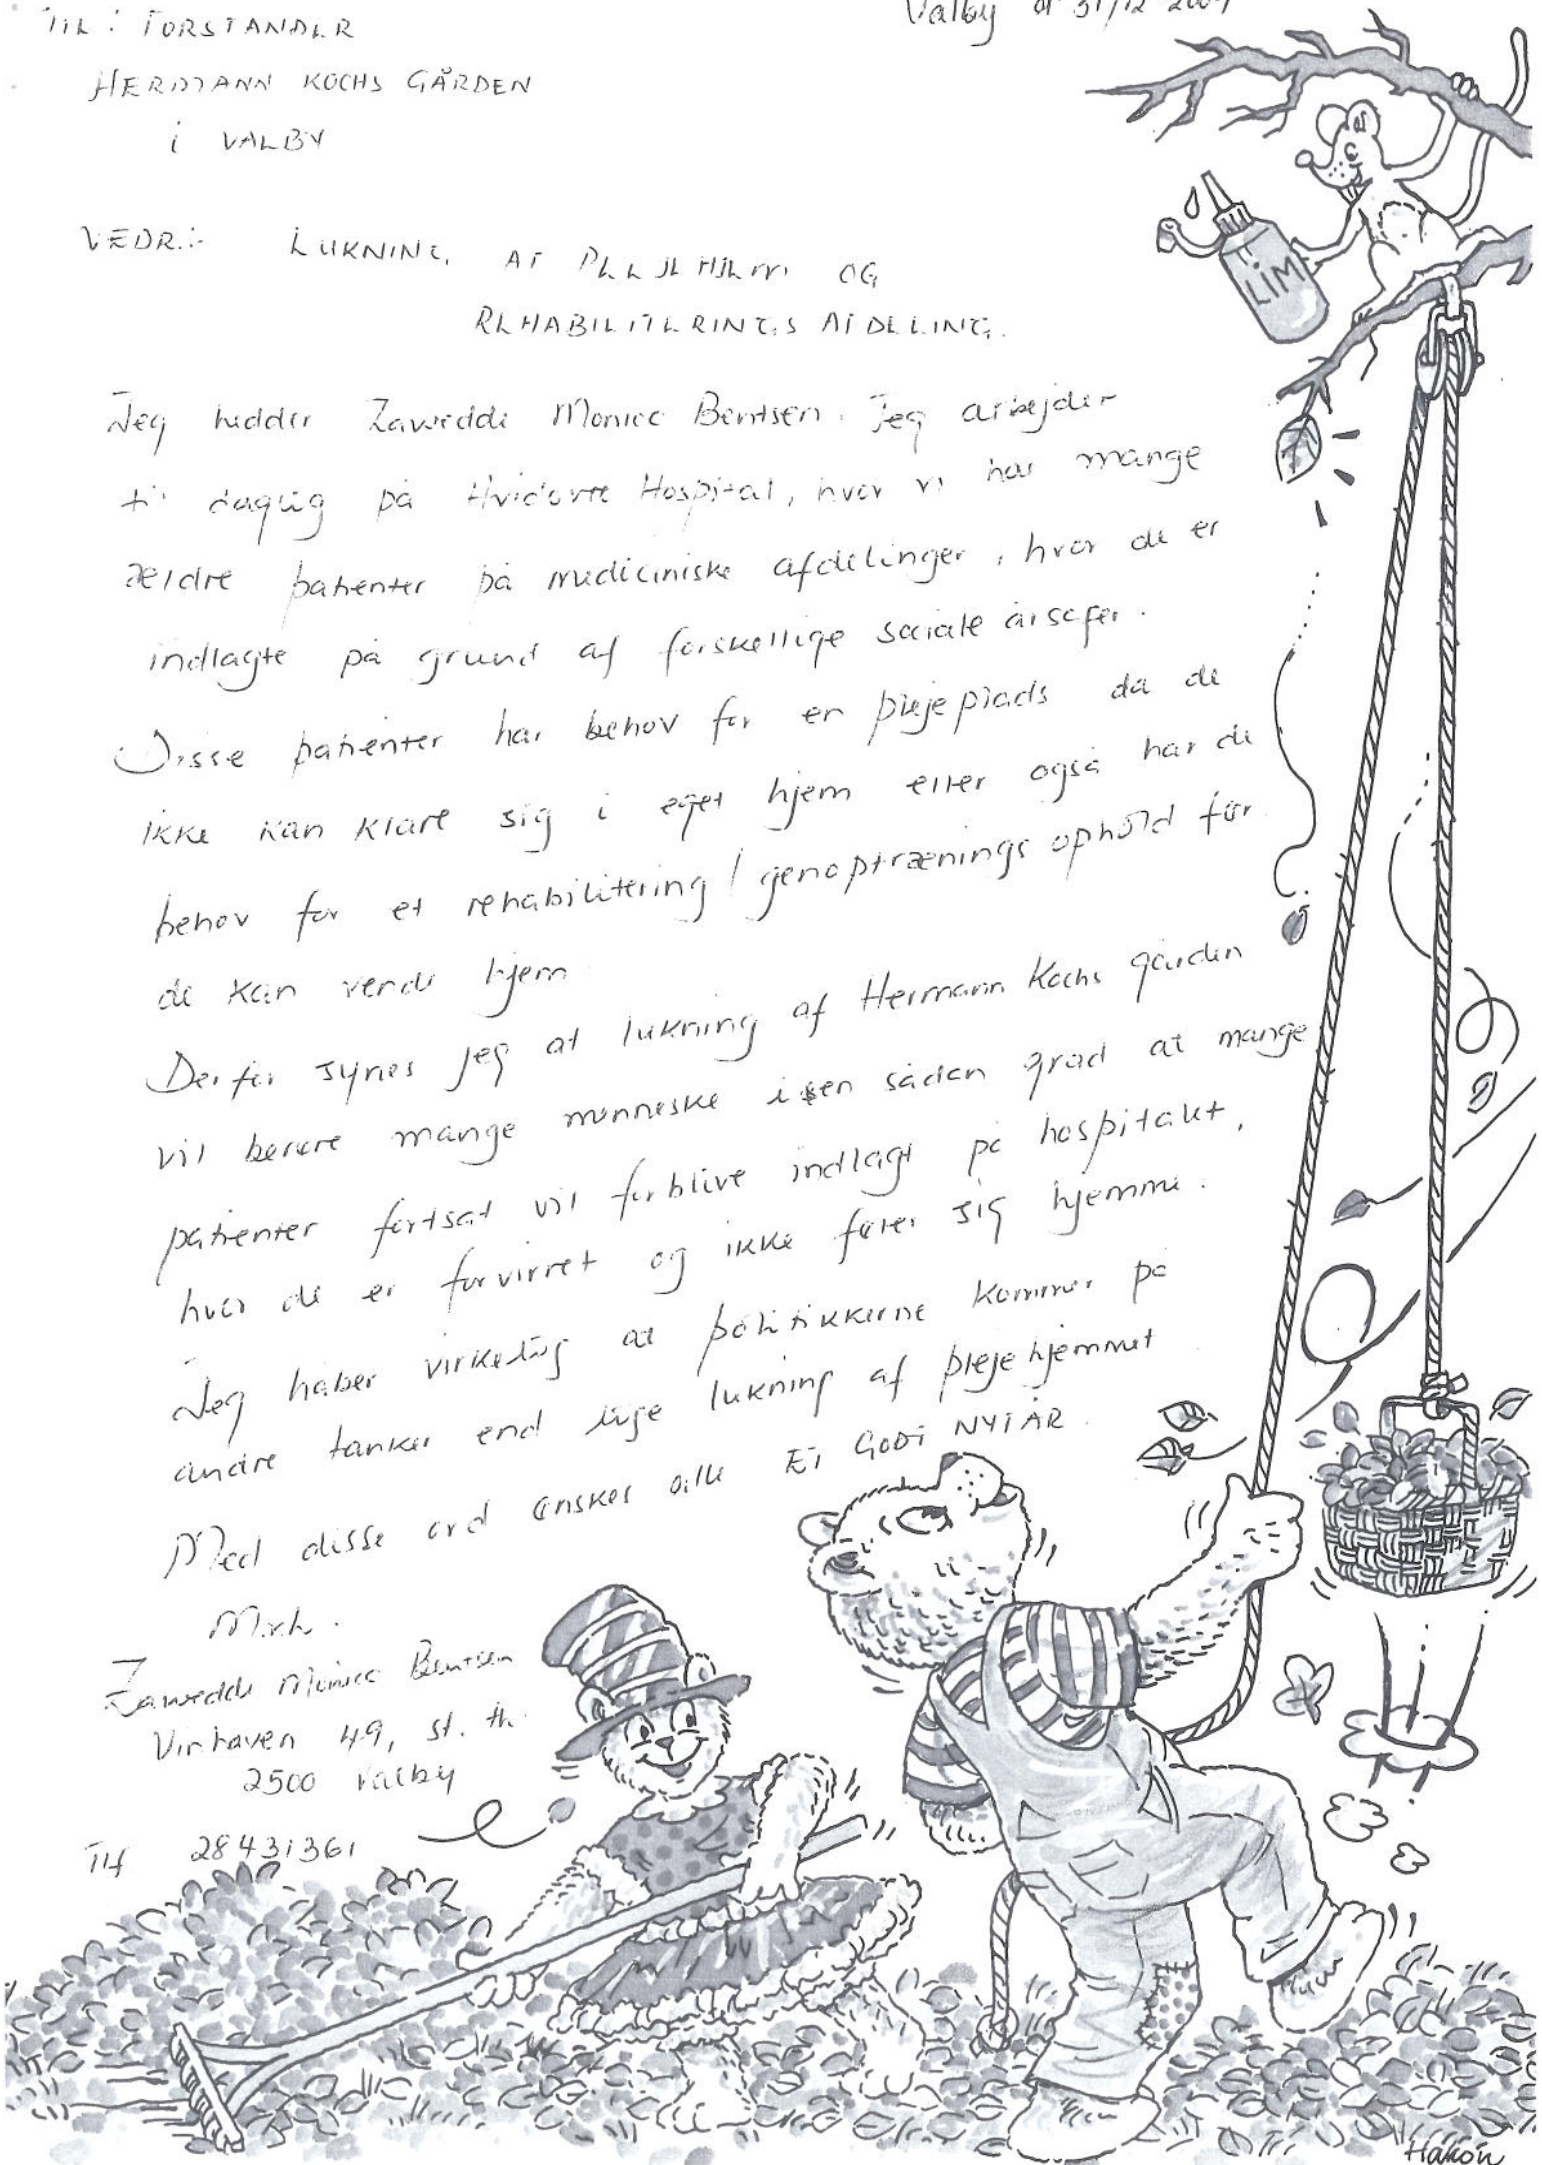 Valby d 31/12 2009
TIL: FORSTANDER
HERMANN KOCHS GÅRDEN
i VALBY
VEDR.:- LUKNING AF PLEJEHJEM OG
REHABILITERINGS AFDELING.
Jeg hedder Zawedde Monica Bentsen. Jeg arbejder
til daglig på Hvidovre Hospital, hvor vi har mange
ældre patienter på medicinske afdelinger, hvor de er
indlagte på grund af forskellige sociale årsager.
Disse patienter har behov for en plejeplads da de
ikke kan klare sig i eget hjem eller også har de
behov for et rehabilitering / genoptrænings ophold før
de kan vende hjem
Derfor synes jeg at lukning af Hermann Kochs gården
vil berøre mange menneske i en sådan grad at mange
patienter fortsat vil forblive indlagt på hospitalet,
hvor de er forvirret og ikke føler sig hjemme.
Jeg håber virkelig at politikkerne kommer på
andre tanker end lige lukning af plejehjemmet
Med disse ord ønskes alle ET GODT NYTÅR.
M.v.h.
Zawedde Monica Bentsen
Vinhaven 49, st. th.
2500 Valby
Tlf 28431361
LIM
Håkon